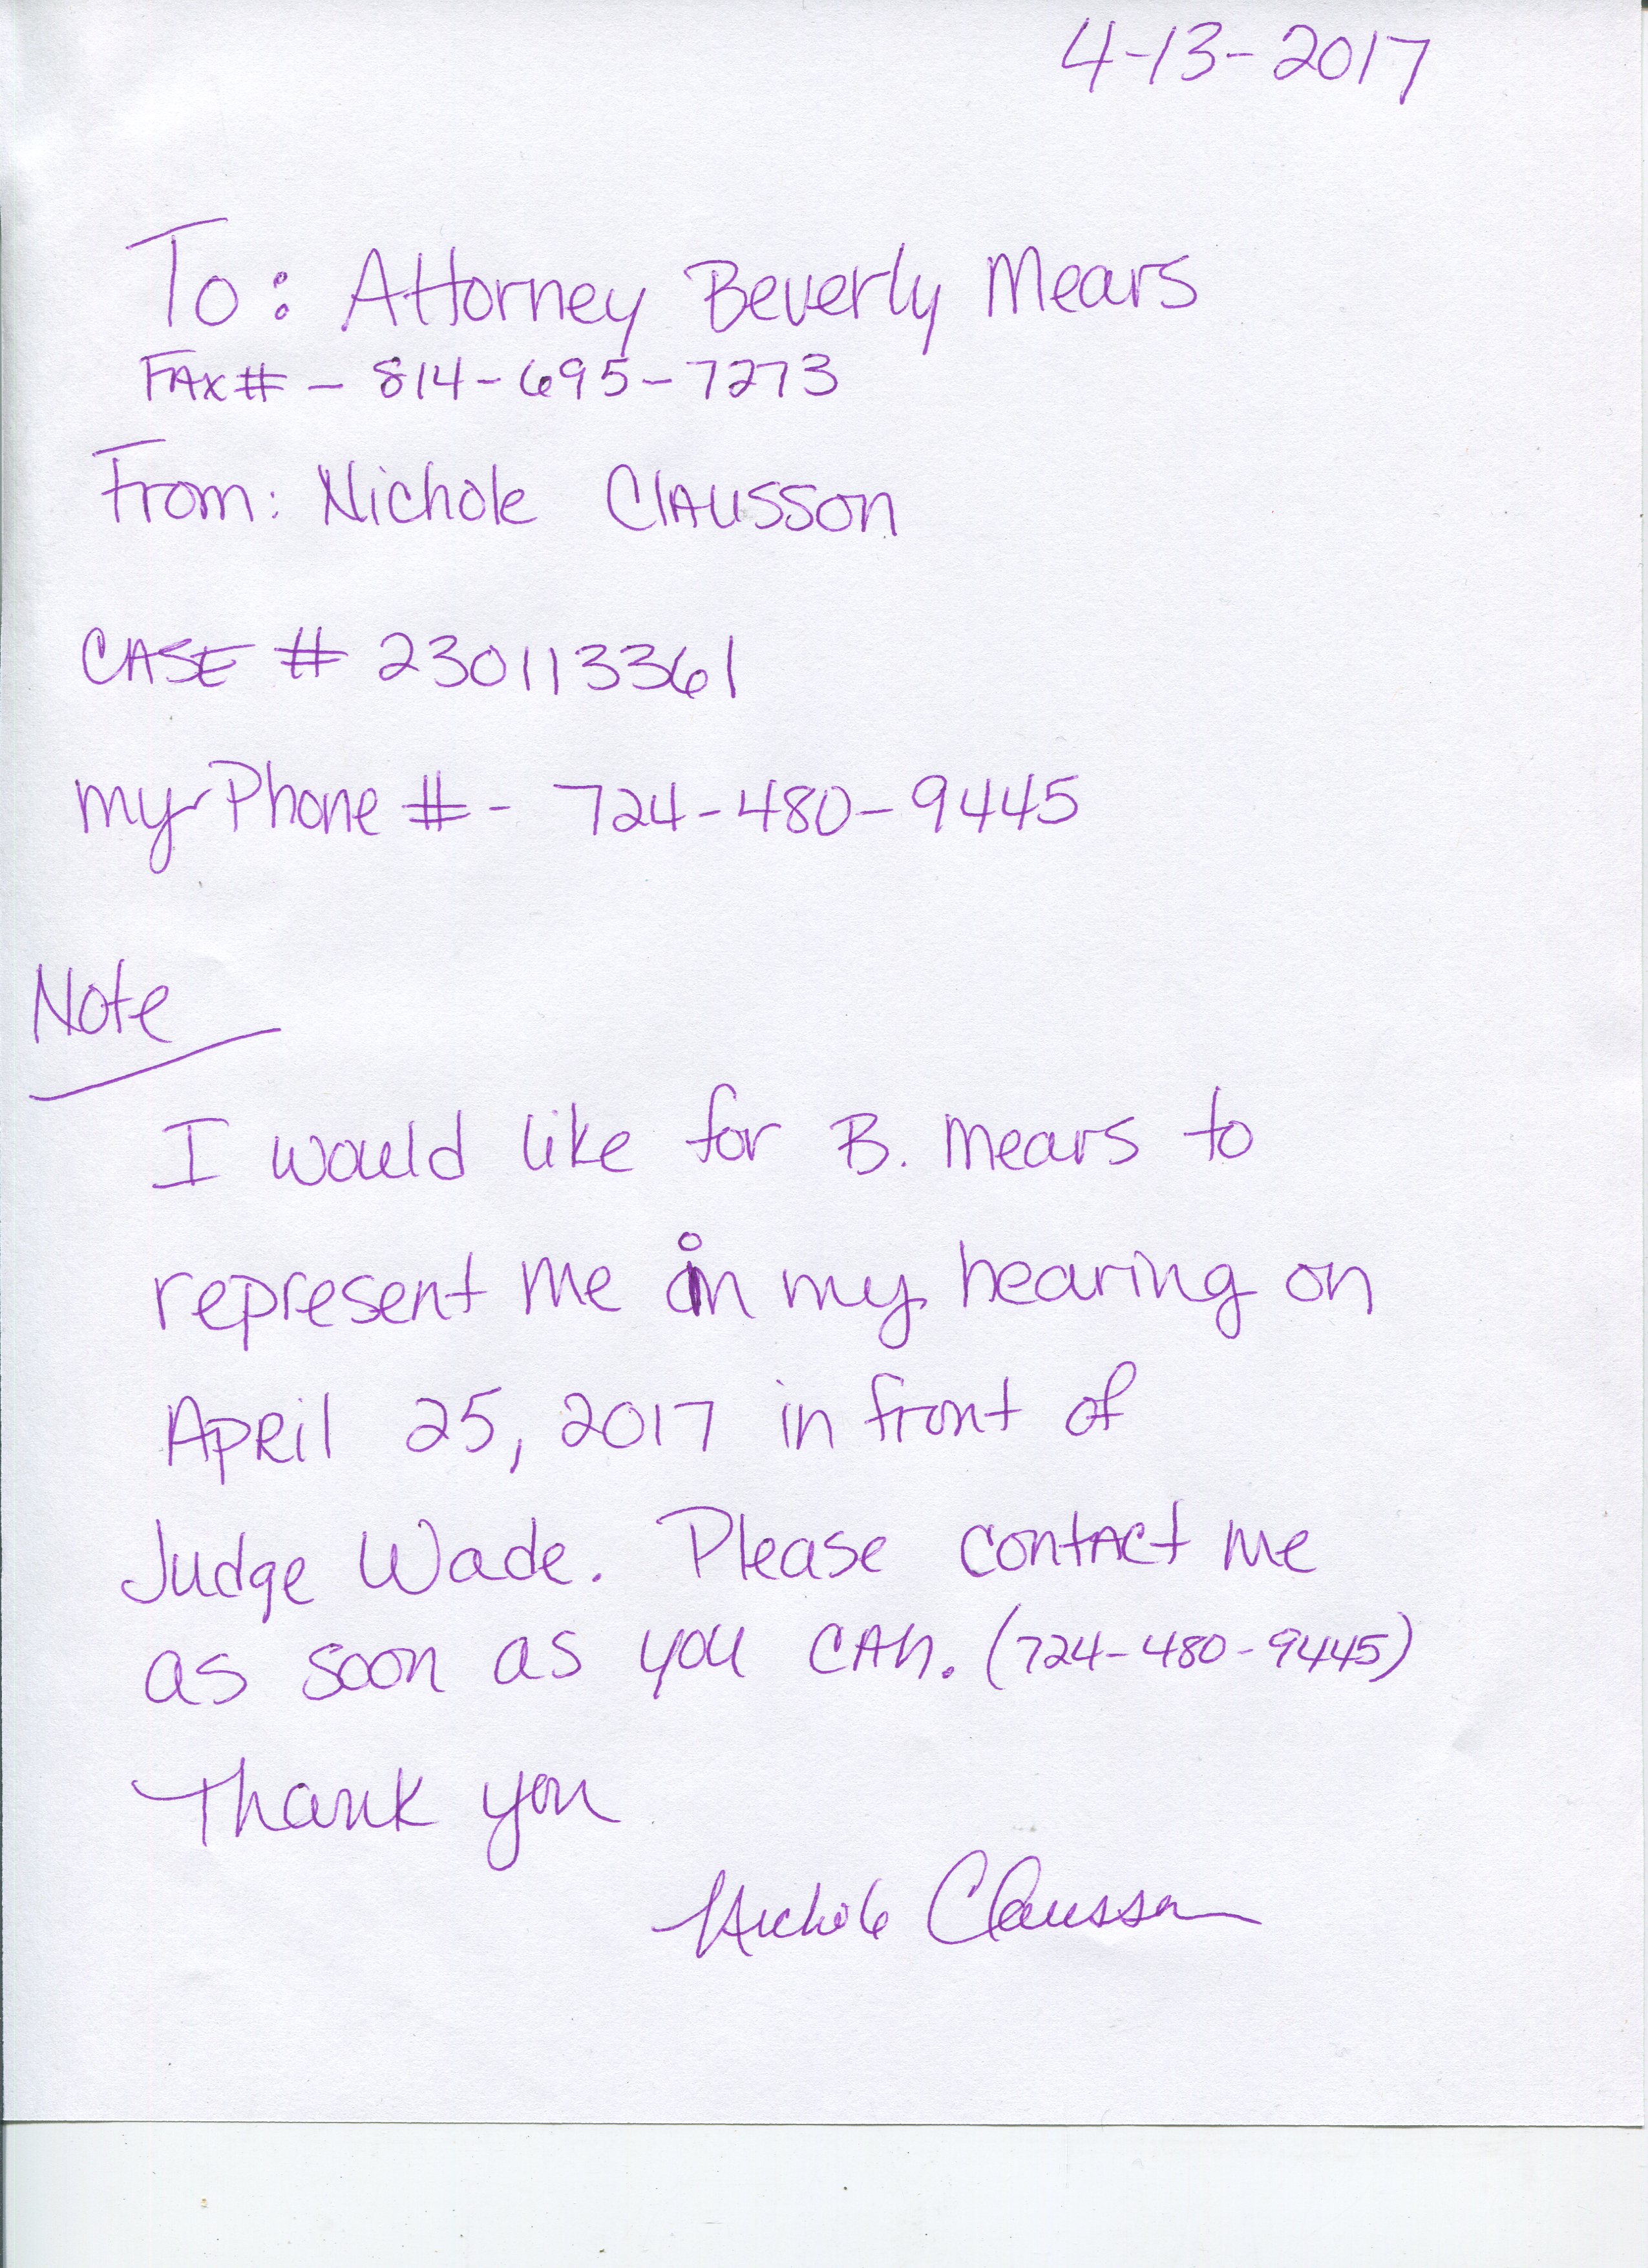 4-13-2017
To: Attorney Beverly Mears
FAX# - 814-695-7273
From: Nichole Clausson
CASE # 230113361
my Phone # - 724-480-9445
Note
I would like for B. Mears to
represent me in my hearing on
April 25, 2017 in front of
Judge Wade. Please contact me
as soon as you can. (724-480-9445)
Thank you
Nichole Clausson